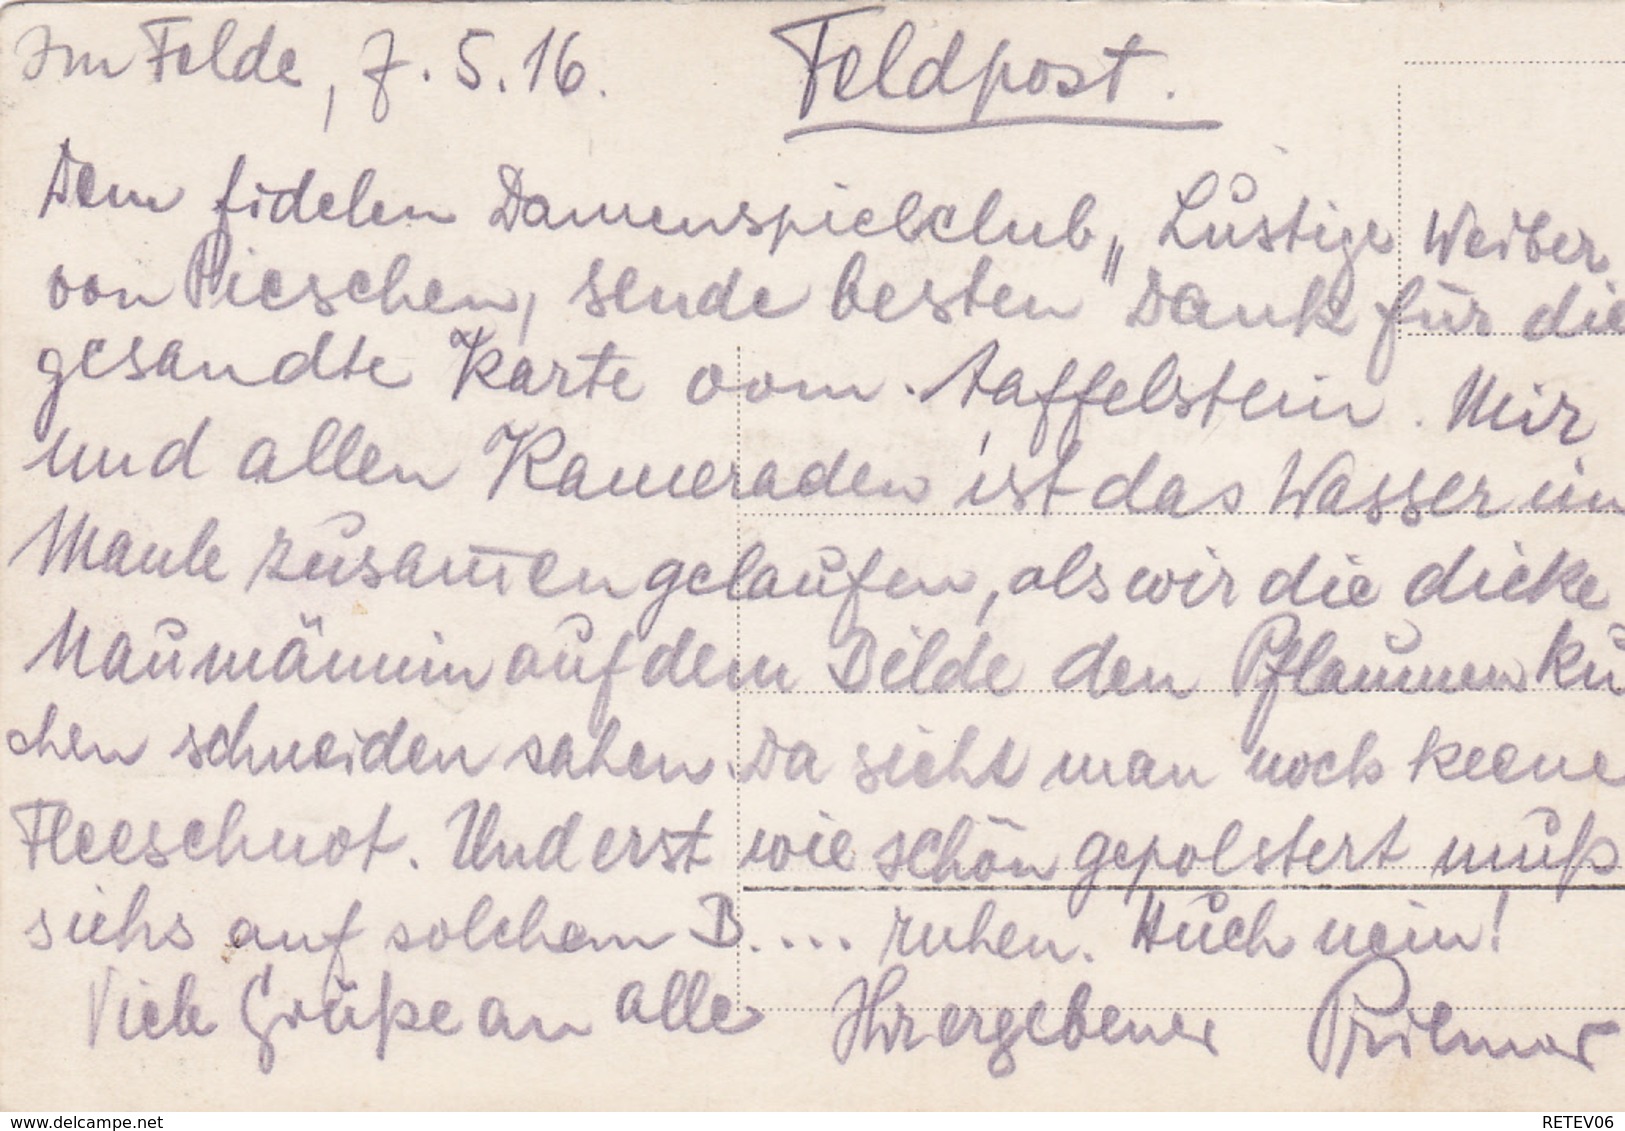 Im Felde, 7.5.16. Feldpost.
Dem fidelen Damenspielclub „Lustige Weiber
von Pieschen, sende besten Dank für die
gesandte Karte vom Taffelstein. Mir
und allen Kameraden ist das Wasser im
Maule zusammengelaufen, als wir die dicke
Naumännin auf dem Bilde den Pflaumenku
chen schneiden sahen. Da sieht man noch keene
Fleeschnot. Und erst wie schön gepolstert muß
sichs auf solchem B.... ruhen. Huch nein!
Viele Grüße an alle Ihr ergebener
RETEV06